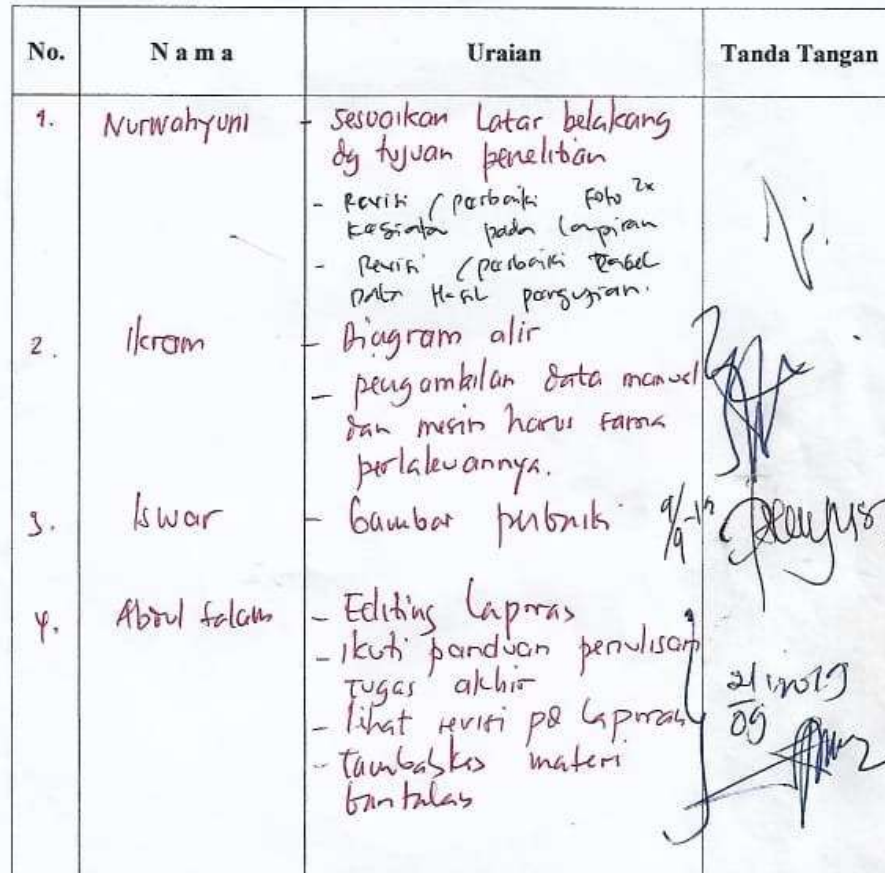 No. N a m a Uraian Tanda Tangan
1. Nurwahyuni - Sesuaikan Latar belakang
dg tujuan penelitian
- Revisi / perbaiki Foto 2x
kegiatan pada lampiran
- Revisi / perbaiki Tabel
Data Hasil pengujian.
2. Ikram - Diagram alir
- pengambilan data manual
dan mesin harus sama
perlakuannya.
3. Iswar - Gambar perbaiki
4. Abdul Salam - Editing Laporan
- ikuti panduan penulisan
tugas akhir
- lihat revisi pd Laporan
- tambahkan materi
bantalan